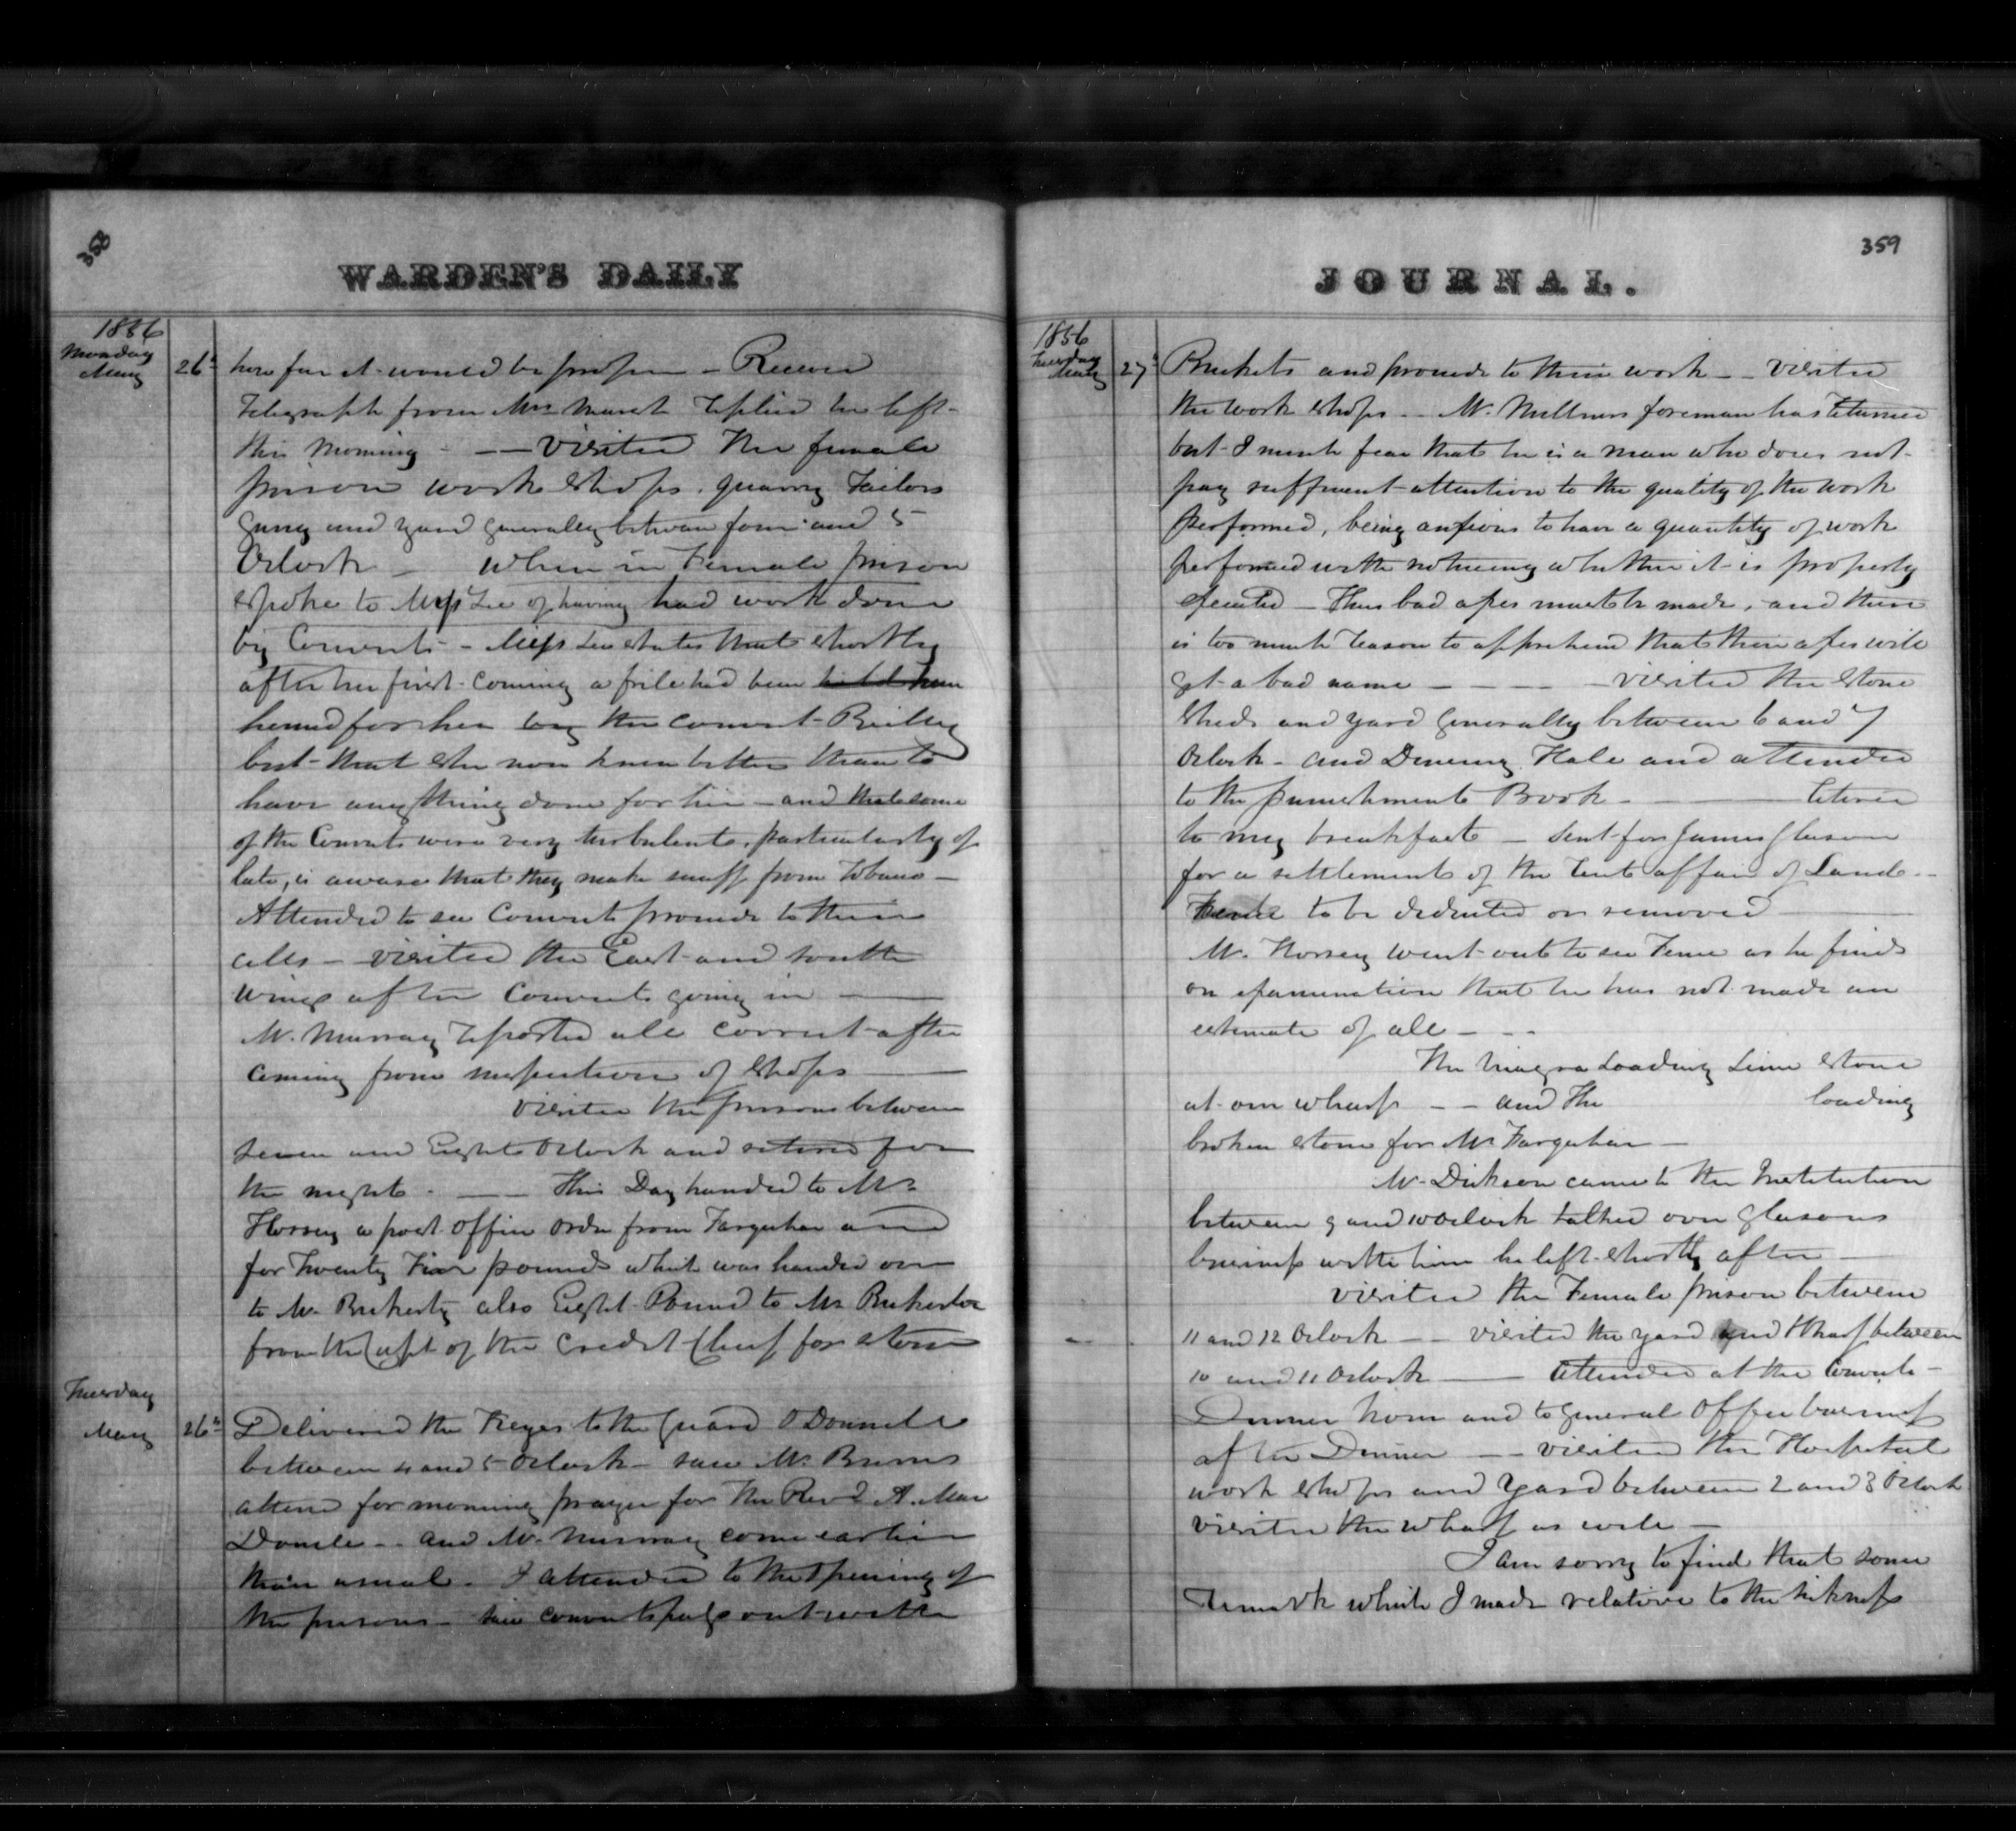 358
WARDEN'S DAILY
1856
Monday
May
26th
how far it would be proper - Received
Telegraph from Mrs replied he left
this morning - -- visited the female
prison work shops. quarry Tailors
Gang and yard generally between four and 5
Oclock - when in Female prison
spoke to Miss Lee of having had work done
by Convicts - Miss Lee states that shortly
after her first coming a frill had been
hemed for her by the convict Reilley
but that she now knew better than to
have anything done for her - and that some
of the Convicts were very turbulent, particularly of
late, is aware that they make snuff from Tobacco -
Attended to see Convicts proceede to their
cells - visited the East and South
wings after Convicts going in
Mr. Murray reported all correct after
coming from inspection of Shops
visited the prisons between
seven and Eight Oclock and retired for
the night. - This Day handed to Mr
Horsey a post office order from Farquhar and
for Twenty Five pounds which was handed over
to Mr. also Eight Pound to Mr
from the Capt of the Credit Chief for stone
Tuesday
May
26th
Delivered the Keyes to the Guard O Donnell
between 4 and 5 Oclock - saw Mr.
attend for morning prayer for the Revd A. Mac
Donell - and Mr. Murray come earlier
than usual. I attended to the opening of
the prisons - saw convicts pass out with
JOURNAL.
359
1856
Tuesday
May
27th
Buckets and proceede to their work -- visited
the work shops - Mr. Millners foreman has returned
but I much fear that he is a man who does not
pay sufficient attention to the quality of the work
performed, being anxious to have a quantity of work
performed with noticeing whether it is property
executed - Thus bad axes must be made, and there
is too much reason to apprehend that their axes will
get a bad name - visited the Stone
Sheds and yard Generally between 6 and 7
Oclock - and Dineing Hall and attended
to the punishments Book - retired
to my breakfast - Sent for James Gleason
for a settlement of the rent affair of Land -
Fence to be deducted or removed
Mr. Horsey went out to see Fence as he finds
on examination that he has not made an
estimate of all - - -
The Niagra Loading Lime Stone
at our wharf -- and the loading
broken stone for Mr Farquhar -
Mr. Dickson came to the Institution
between 9 and 10 Oclock talked over Gleasons
business with him he left shortly after -
visited the Female prison between
11 and 12 Oclock -- visited the yard and Wharf between
10 and 11 Oclock - attended at the Convicts -
Dinner hour and to general office business
after Dinner -- visited the Hospital
work shops and yard between 2 and 3 Oclock
visited the wharf as well -
I am sorry to find that some
remark which I made relative to the sickness